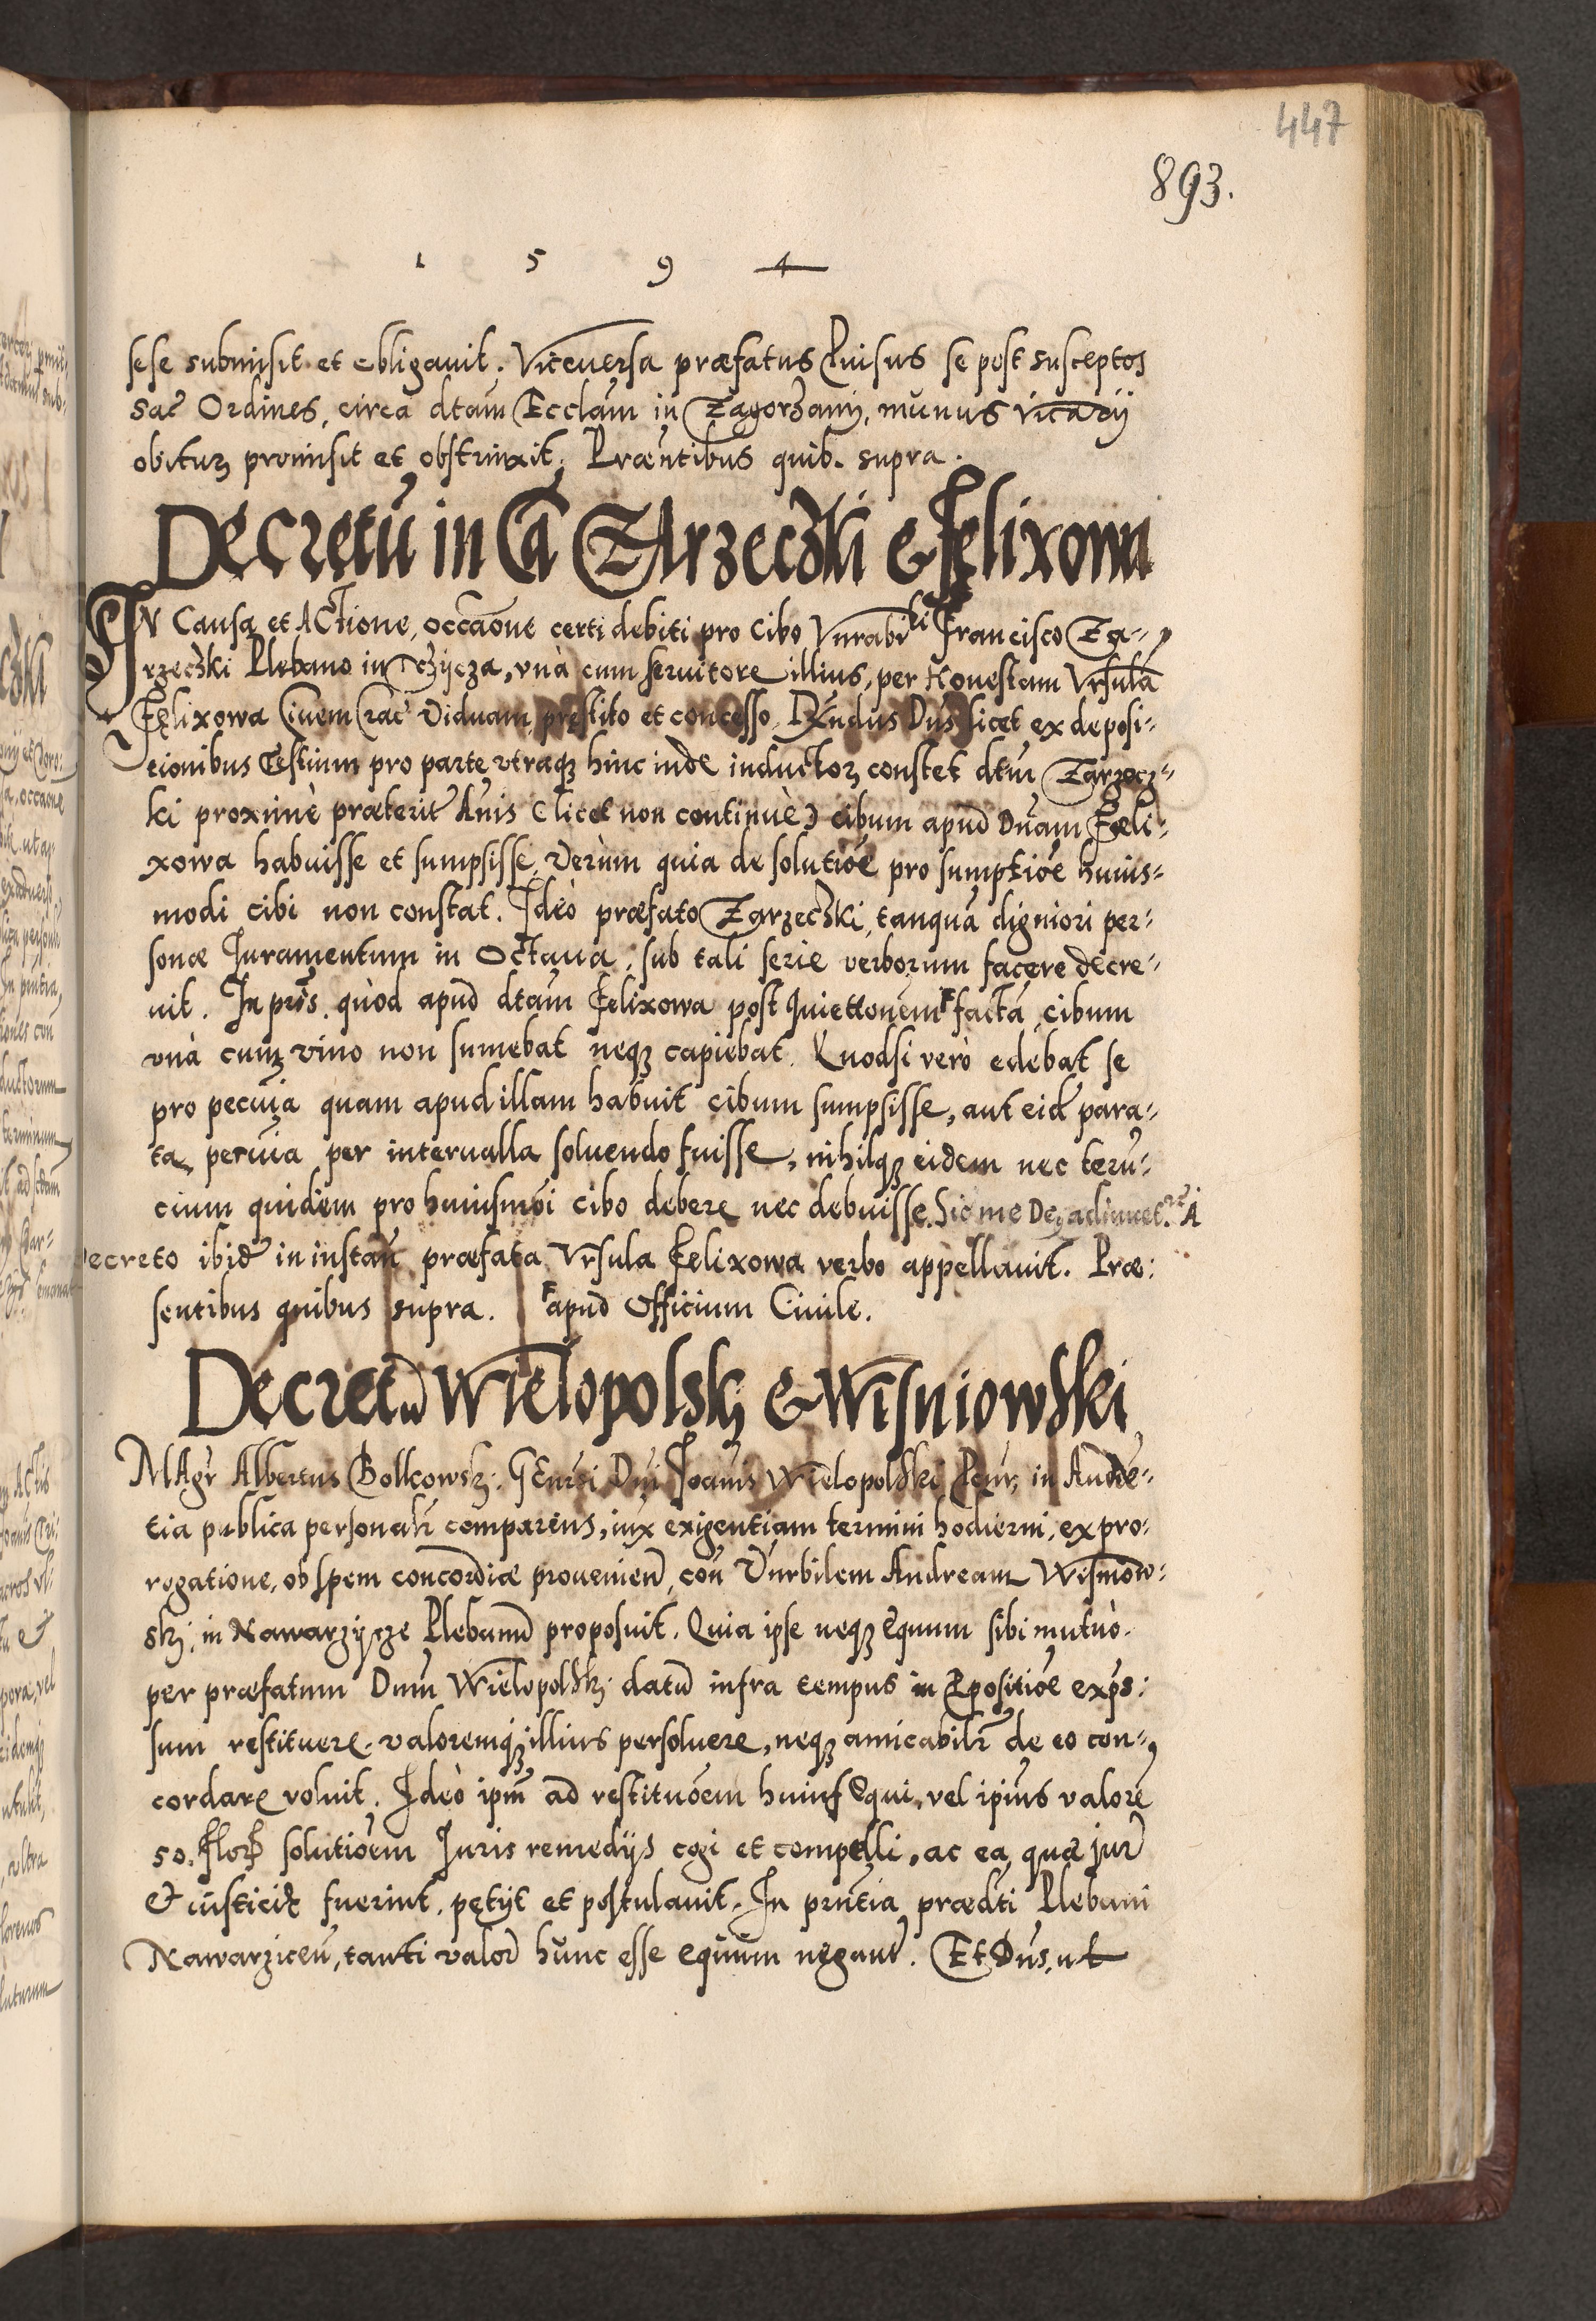 447
893.
1 5 9 4
sese submisit et obligauit. Viceuersa præfatus Prisus se post susceptos
sac Ordines, circa dtam Ecclam in Zagorzany, munus vicarij
obitur promisit et obstrinxit. Præntibus quib. supra.
Decretū in Cā Zarzeczki & Felixowa
IN Causa et Actione, occaōne certi debiti pro cibo Vnrabili Francisco Za-
rzeczki Plebano in Tczycza, vnà cum seruitore illius, per Honestam Vrsulā
Felixowa Ciuem Crac Viduam, prestito et concesso. Rndus Dns licet ex deposi-
tionibus Testium pro parte vtraq3 hinc inde inductor3 constet dtm Zarzecz-
ki proximè præterit Anis (licet non continuè) cibum apud Dnam Fæli-
xowa habuisse et sumpsisse, Verùm quia de solutiōe pro sumptiōe huius-
modi cibi non constat. Ideò præfato Zarzeczki, tanquā digniori per-
sonæ Juramentum in Octaua, sub tali serie verborum facere decre-
uit. In pris. quòd apud dtam Felixowa post Quiettonem factā, cibum
vnà cum vino non sumebat neq3 capiebat. Quodsi verò edebat se
pro pecuia quam apud illam habuit cibum sumpsisse, aut eid para-
ta pecuia per interualla soluendo fuisse, nihilq3 eidem nec teru-
cium quidem pro huiusmōi cibo debere nec debuisse. Sic me De9 adiuuet. A
decreto ibid in instan præfata Vrsula Felixowa verbo appellauit. Præ:
sentibus quibus supra. apud Officium Ciuile.
Decretū Wielopolsk3 & Wisniowski
MAgr Albertus Bolkowsk3. GEnrsi Dni Joanis Wielopolski Pcur, in Audiē-
tia publica personalr comparens, iux exigentiam termini hodierni, ex pro-
rogatione, ob spem concordiæ prouenien, con Vnrbilem Andream Wisniow-
sk3, in Nawarzycze Plebanū proposuit. Quia ipse neq3 Equum sibi mutuò.
per præfatum Dnm Wielopolsk3 datū infra tempus in Ppositiōe exps:
sum restituere. valoremq3 illius persoluere, neq3 amicabilr de eo con-
cordare voluit. Ideò ipm ad restituōem huius Equi, vel ipius valorē
50. Flor solutiōem Juris remedijs cogi et compelli, ac ea quæ jur
& iusticiæ fuerint, petijt et postulauit. In pntia prædti Plebani
Nawarziceń, tanti valor hunc esse equum negant. Et Dns, ut